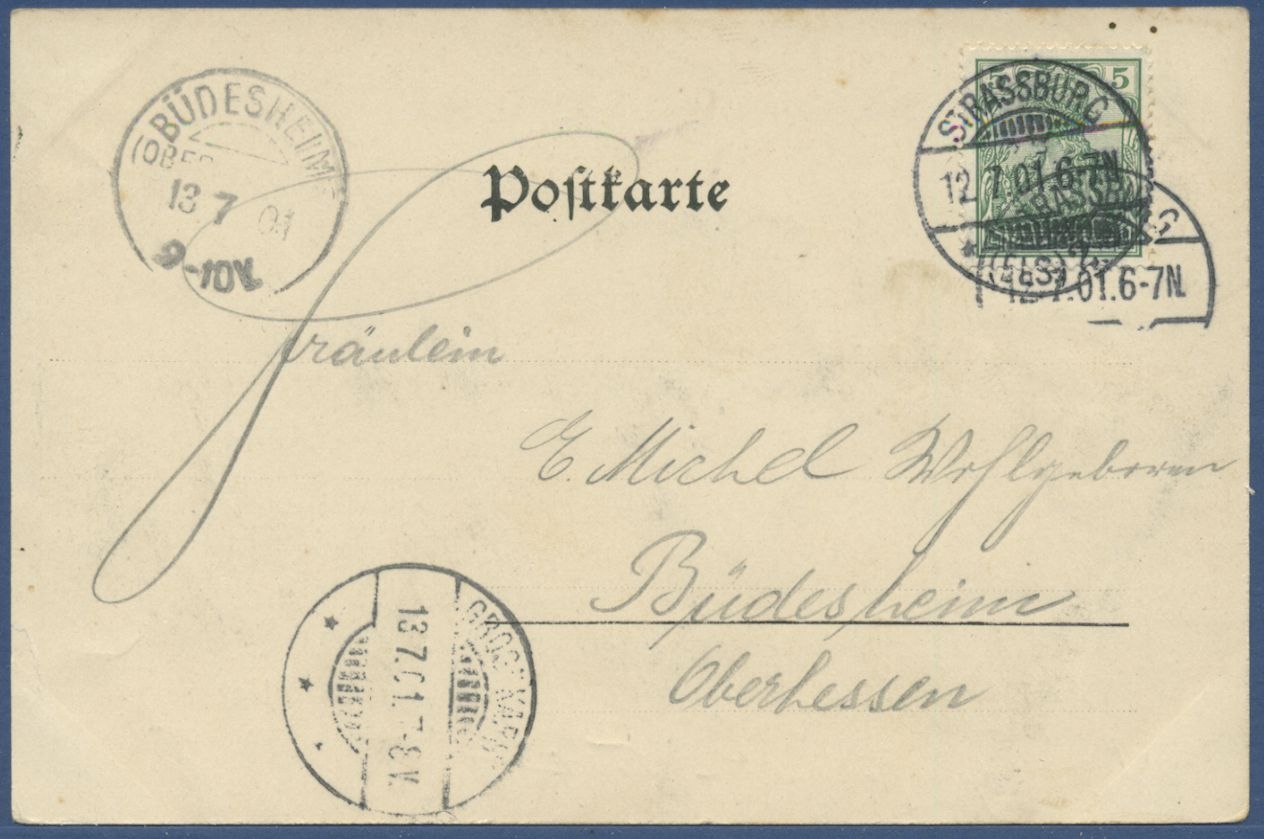 BÜDESHEIM
13 7 01
9-10V.
Postkarte
5
STRASSBURG
12 7.01.6-7N
(ELS) 2
12.7.01.6-7N.
Fräulein
E. Michel Wohlgeboren
Büdesheim
Oberhessen
13.7.01.7-8V.